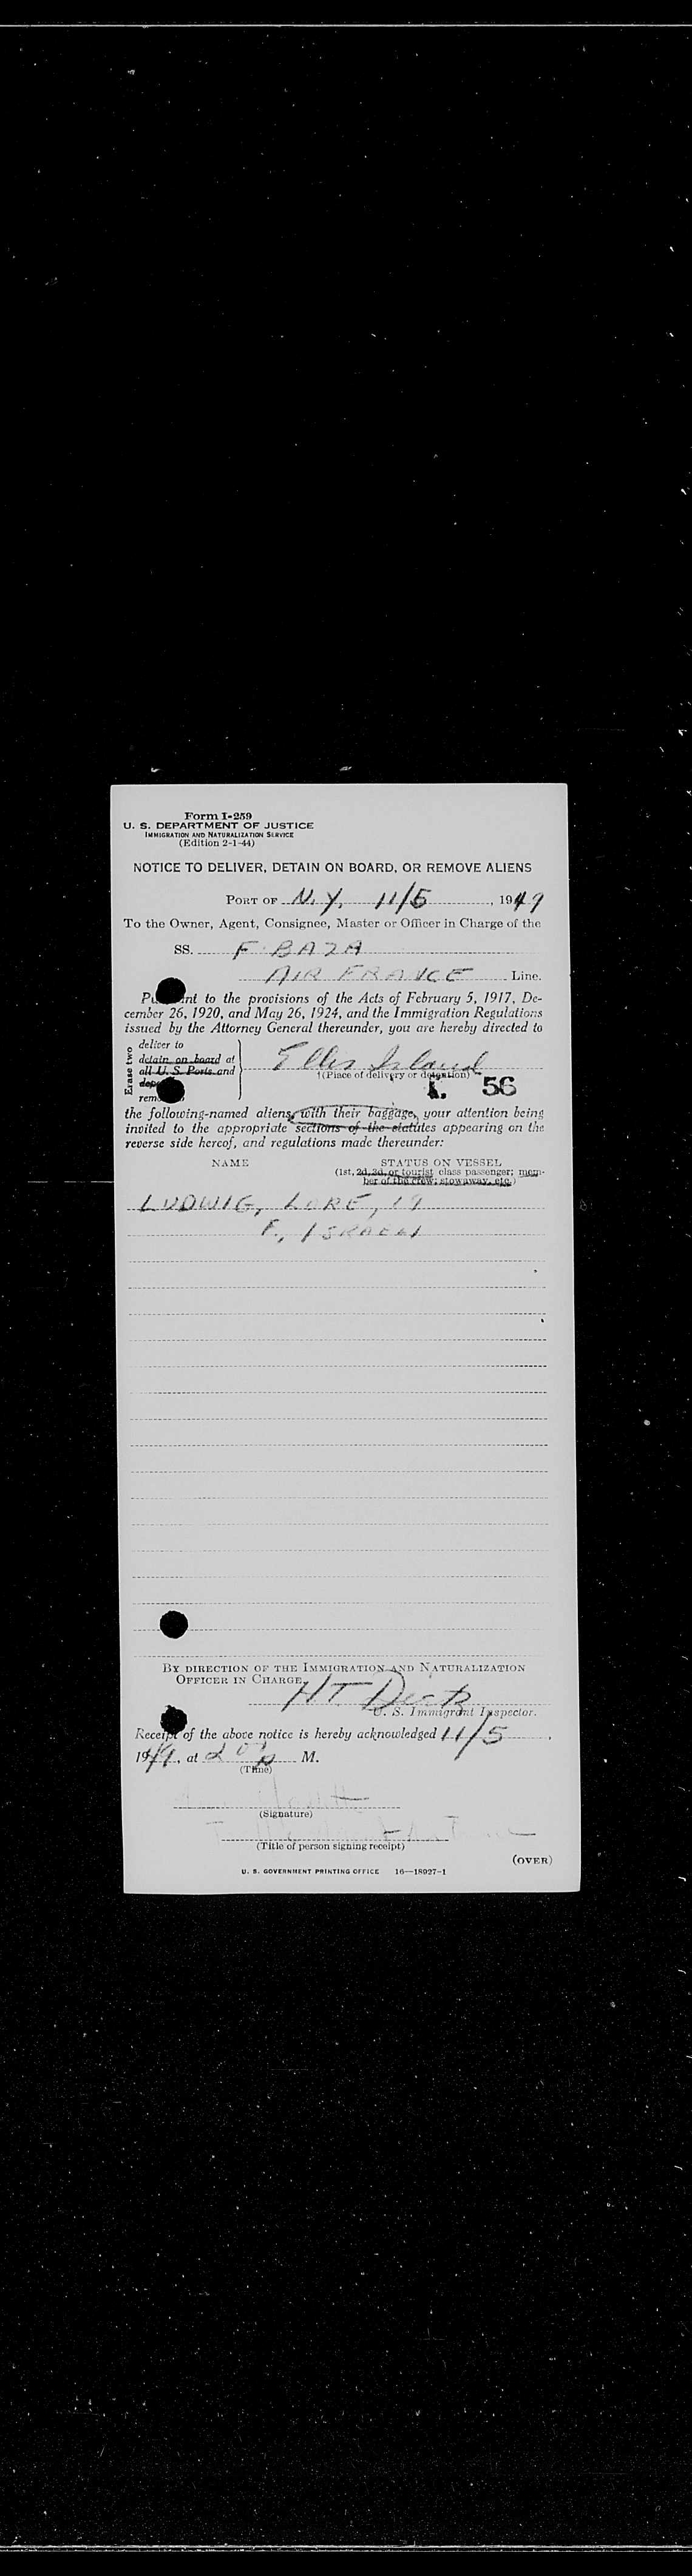 Form I-259
U. S. DEPARTMENT OF JUSTICE
IMMIGRATION AND NATURALIZATION SERVICE
(Edition 2-1-44)
NOTICE TO DELIVER, DETAIN ON BOARD, OR REMOVE ALIENS
PORT OF N. Y. 11/5, 1949
To the Owner, Agent, Consignee, Master or Officer in Charge of the
SS. F-BAZA
AIR FRANCE Line.
to the provisions of the Acts of February 5, 1917, De-
cember 26, 1920, and May 26, 1924, and the Immigration Regulations
issued by the Attorney General thereunder, you are hereby directed to
Erase two
deliver to
detain on board at
all U. S. Ports and
Ellis Island
†(Place of delivery or detention)
56
the following-named aliens, with their baggage, your attention being
invited to the appropriate sections of the statutes appearing on the
reverse side hereof, and regulations made thereunder:
NAME
STATUS ON VESSEL
(1st, 2d, 3d, or tourist class passenger; mem-
ber of the crew; stowaway, etc.)
LUDWIG, LORE, 19
F., ISRAELI
BY DIRECTION OF THE IMMIGRATION AND NATURALIZATION
OFFICER IN CHARGE,
HT
U. S. Immigrant Inspector.
Receipt of the above notice is hereby acknowledged 11/5,
1949, at 2 00 p M.
(Time)
(Signature)
(Title of person signing receipt)
(OVER)
U. S. GOVERNMENT PRINTING OFFICE 16—18927-1